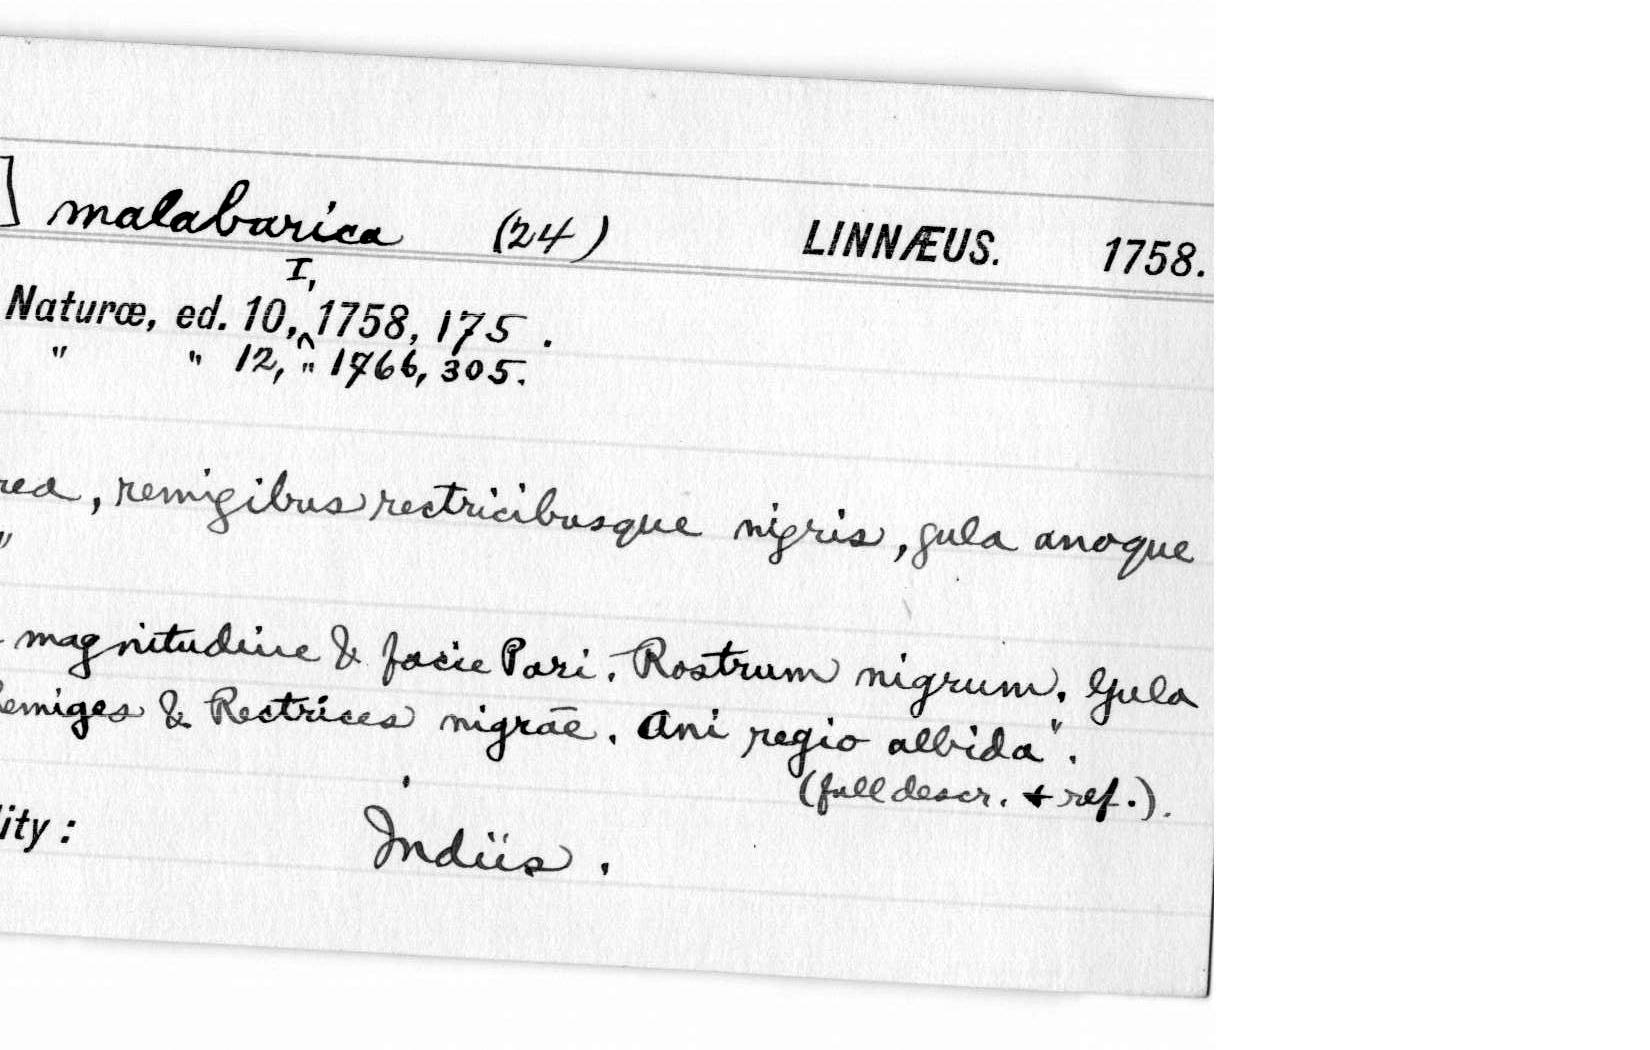 ] malabarica (24) LINNÆUS. 1758.
I,
Naturæ, ed. 10, ^ 1758, 175.
" " 12, " 1766, 305.
rea, remigibus rectricibusque nigris, gula anoque
"
magnitudine & facie Pari. Rostrum nigrum. Gula
emiges & Rectrices nigrae. Ani regio albida".
(full descr. + ref.).
lity: Indiis.